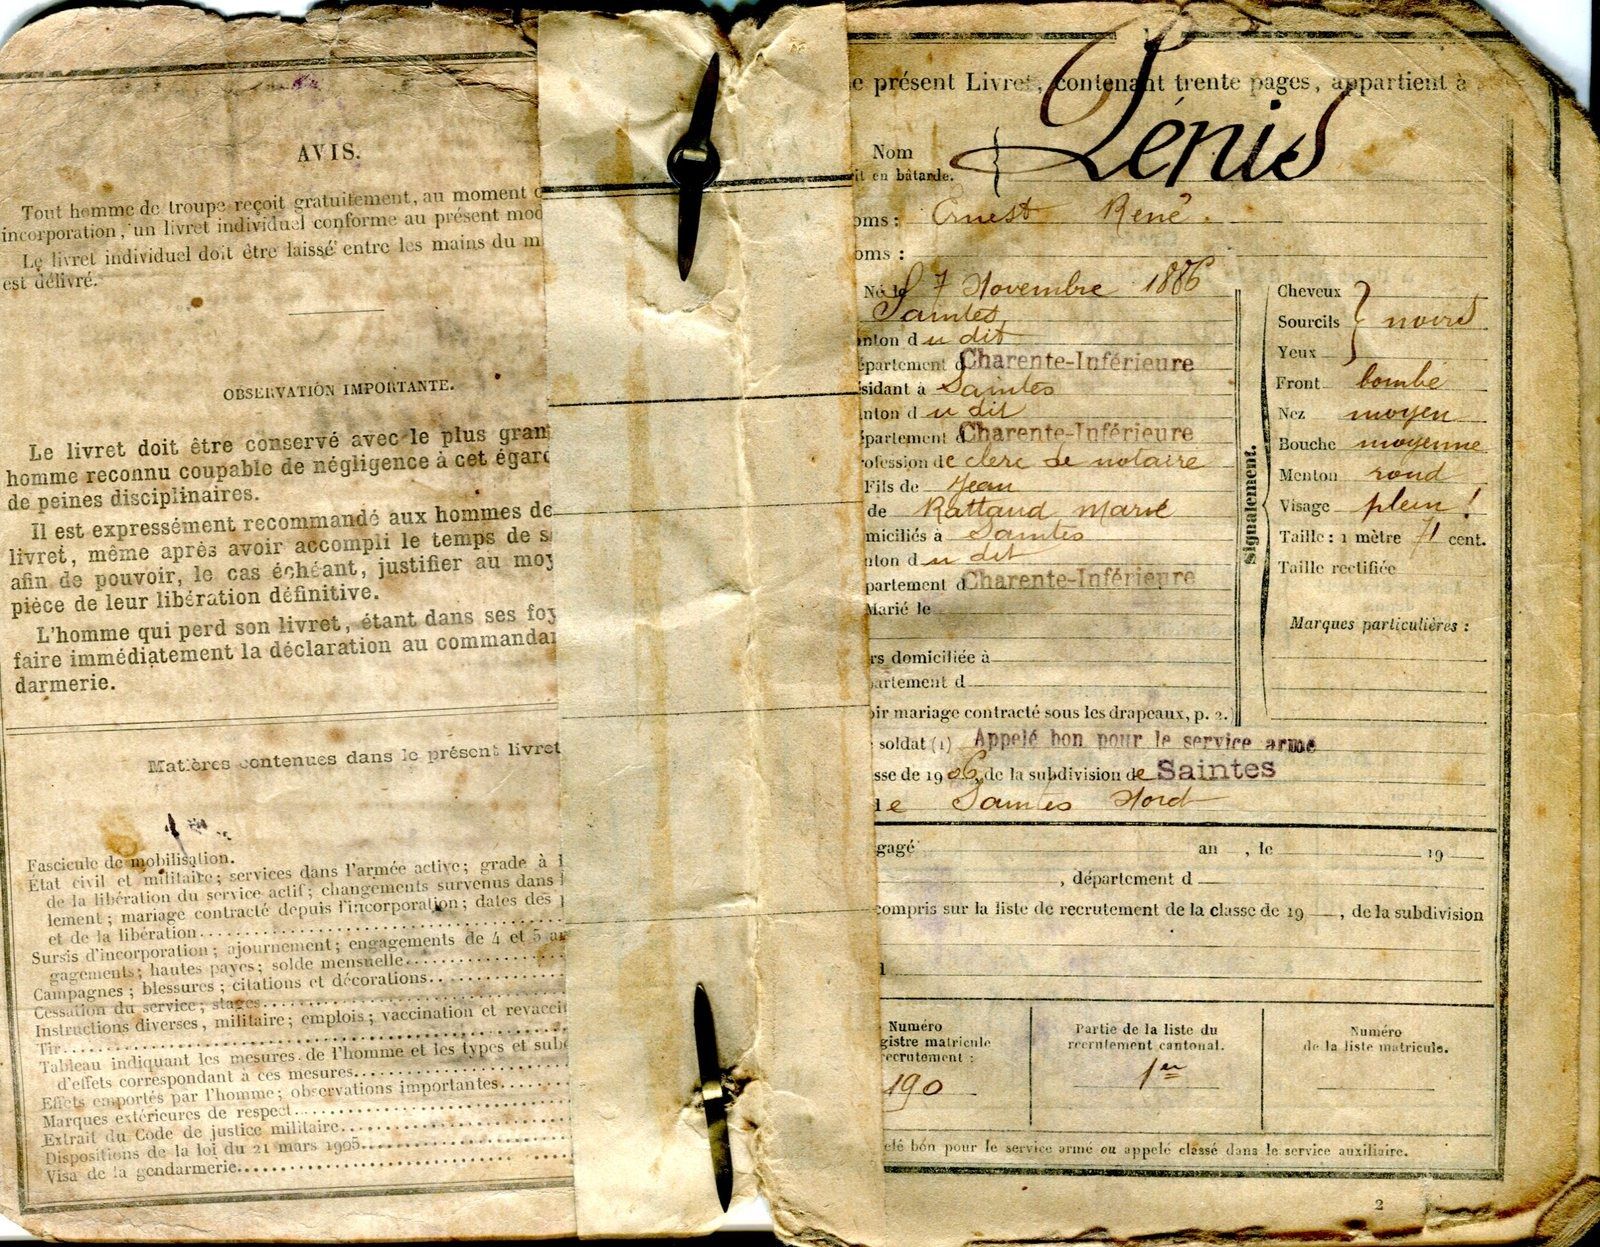 AVIS.
Tout homme de troupe reçoit gratuitement, au moment
incorporation, un livret individuel conforme au présent mod
Le livret individuel doit être laissé entre les mains du m
est délivré.
OBSERVATION IMPORTANTE.
Le livret doit être conservé avec le plus gran
homme reconnu coupable de négligence à cet égard
de peines disciplinaires.
Il est expressément recommandé aux hommes de
livret, même après avoir accompli le temps de s
afin de pouvoir, le cas échéant, justifier au moy
pièce de leur libération définitive.
L'homme qui perd son livret, étant dans ses foy
faire immédiatement la déclaration au commandan
darmerie.
Matières contenues dans le présent livret
Fascicule de mobilisation.
État civil et militaire; services dans l'armée active; grade à l
de la libération du service actif; changements survenus dans
lement; mariage contracté depuis l'incorporation; dates des
et de la libération
Sursis d'incorporation; ajournement; engagements de 4 et 5 an
gagements; hautes payes; solde mensuelle
Campagnes; blessures; citations et décorations
Cessation du service; stages
Instructions diverses, militaire; emplois; vaccination et revaccin
Tir
Tableau indiquant les mesures de l'homme et les types et sub
d'effets correspondant à ces mesures
Effets emportés par l'homme; observations importantes
Marques extérieures de respect
Extrait du Code de justice militaire
Dispositions de la loi du 21 mars 1905
Visa de la gendarmerie
e présent Livret, contenant trente pages, appartient à
Nom Pénis
it en bâtarde.
oms : Ernest René.
oms :
Né le 7 Novembre 1886
Saintes
nton du dit
épartement d Charente-Inférieure
sidant à Saintes
nton du dit
épartement d Charente-Inférieure
rofession de clerc de notaire
Fils de Jean
de Rattaud Marie
miciliés à Saintes
nton du dit
partement d Charente-Inférieure
Marié le
rs domiciliée à
artement d
oir mariage contracté sous les drapeaux, p. 2.)
signalement.
Cheveux
Sourcils noirs
Yeux
Front bombé
Nez moyen
Bouche moyenne
Menton rond
Visage plein !
Taille : 1 mètre 71 cent.
Taille rectifiée
Marques particulières :
soldat (1) Appelé bon pour le service armé
sse de 1906, de la subdivision de Saintes
le Saintes Nord
gagé an , le 19
, département d
compris sur la liste de recrutement de la classe de 19 , de la subdivision
l
Numéro
gistre matricule
recrutement :
190
Partie de la liste du
recrutement cantonal.
1er
Numéro
de la liste matricule.
elé bon pour le service armé ou appelé classé dans le service auxiliaire.
2